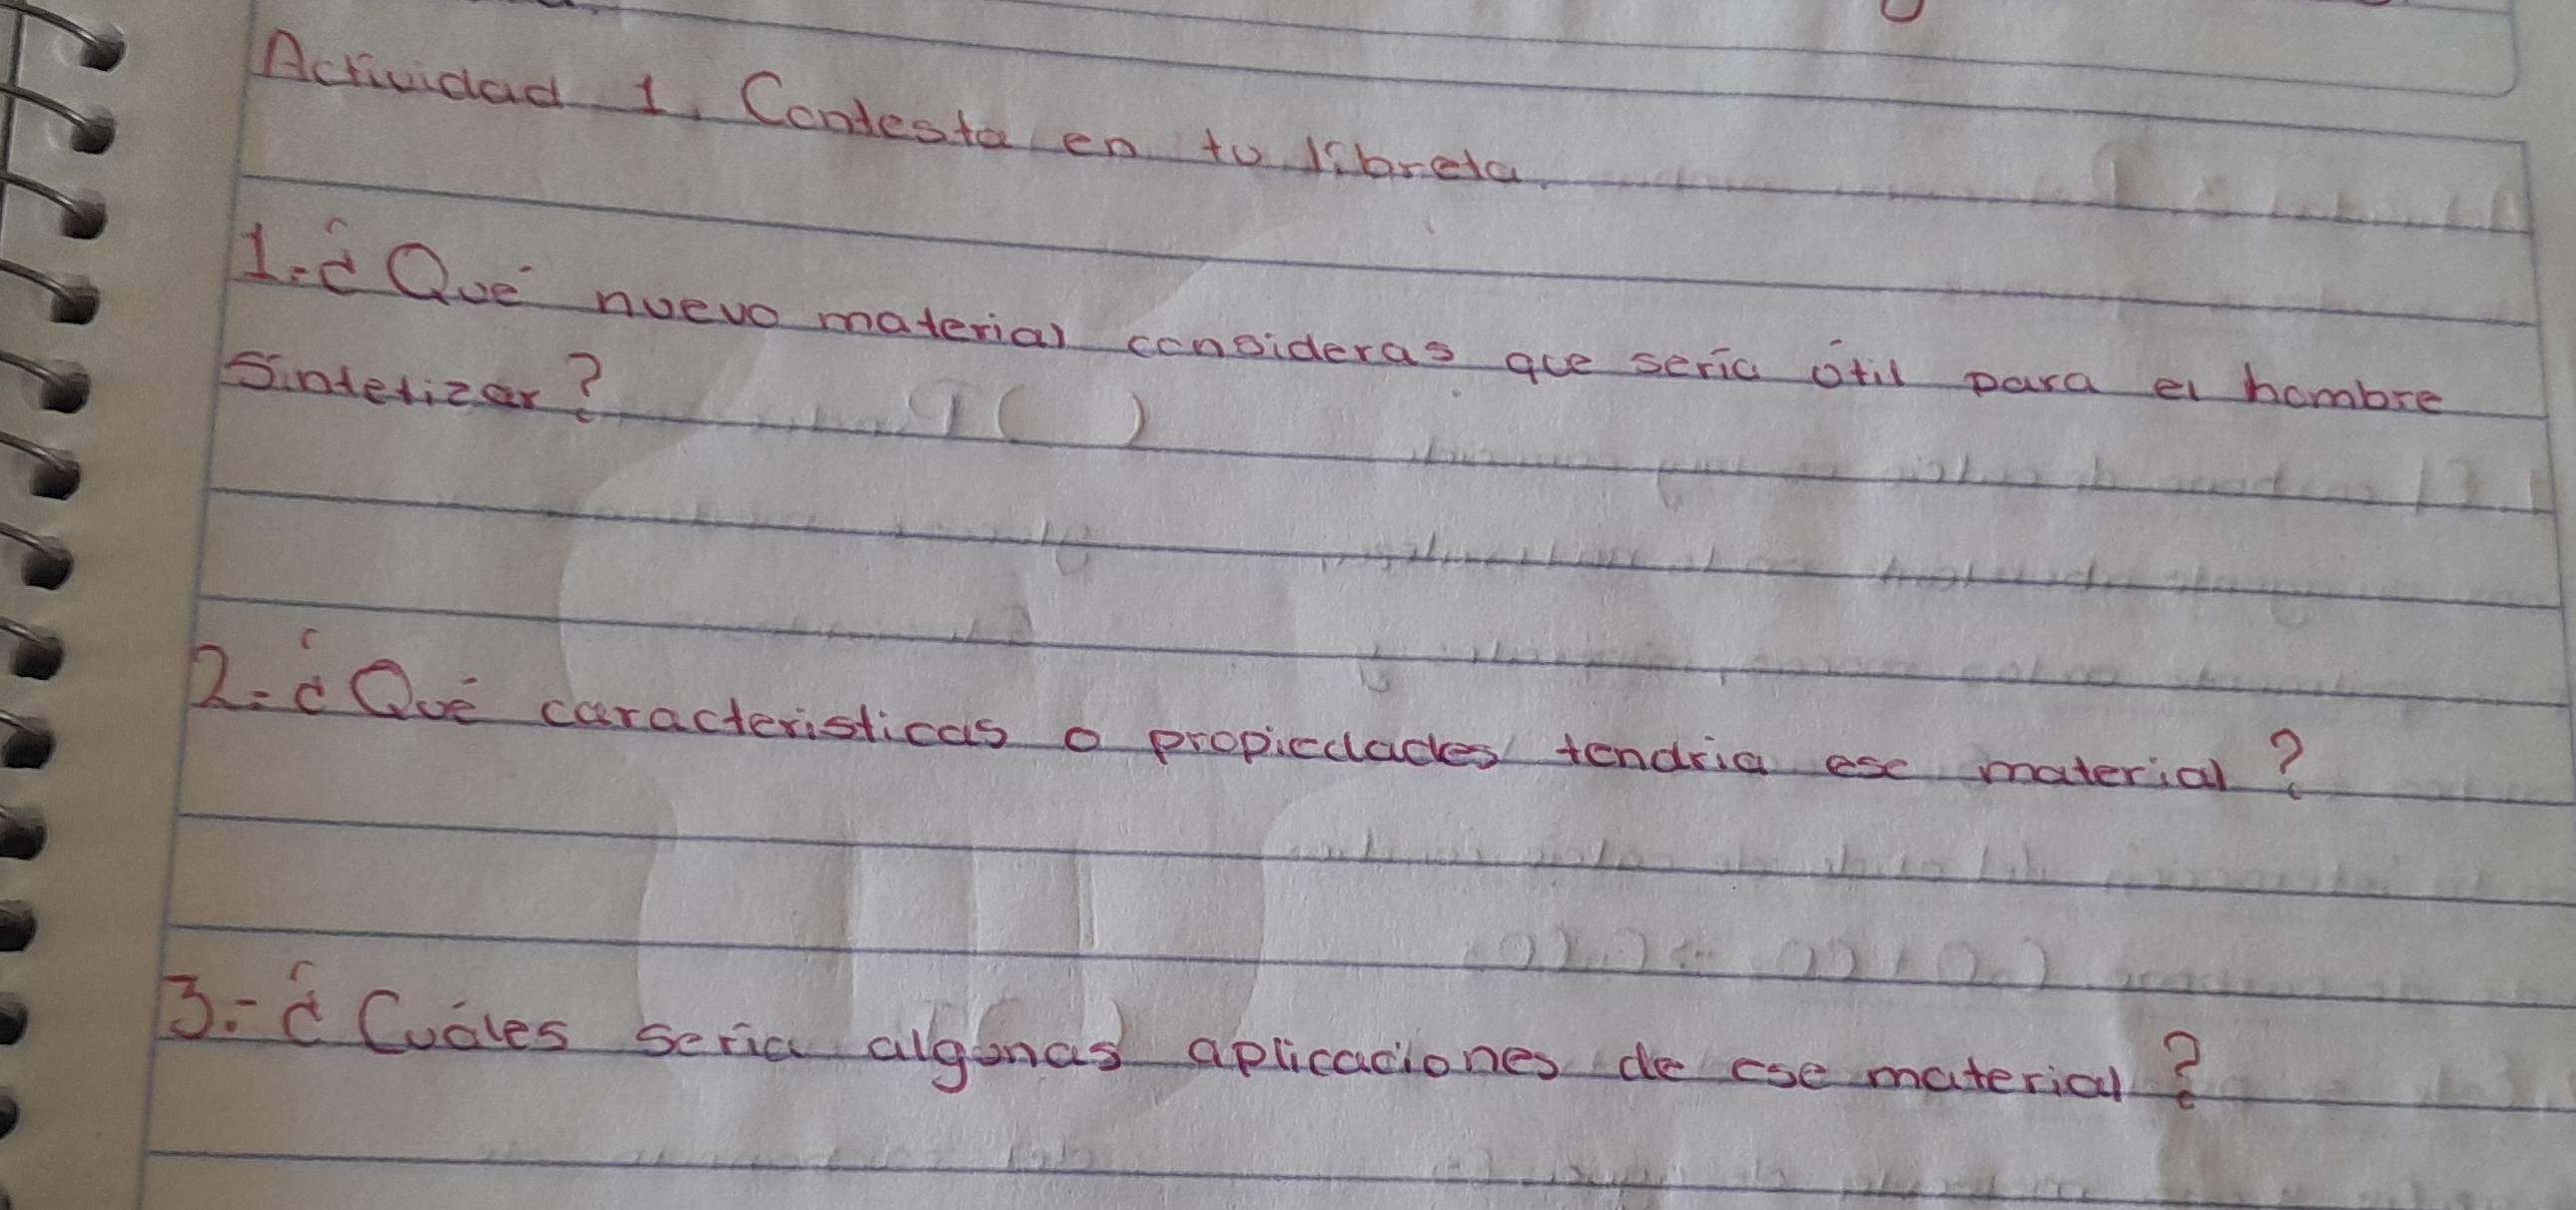 Actividad 1. Contesta en tu libreta.
1.-¿Qué nuevo material consideras que sería útil para el hombre
Sintetizar?
2.-¿Qué caracteristicas o propiedades tendria ese material?
3.-¿Cuáles sería algunas aplicaciones de ese material?